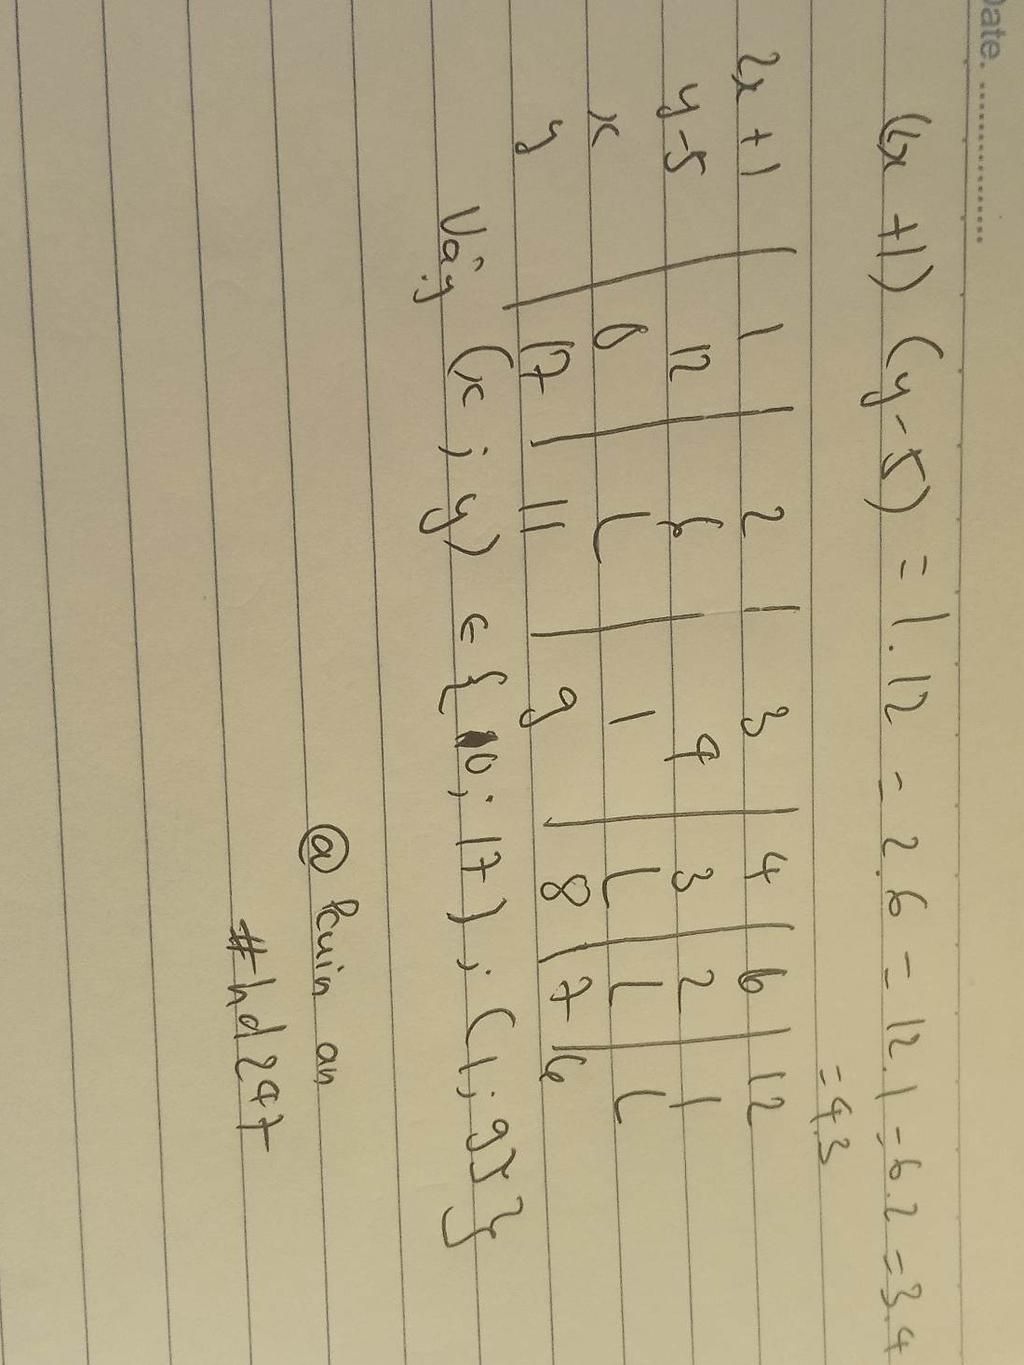 Date. ....................
(2x + 1) (y - 5) = 1.12 = 2.6 = 12.1 = 6.2 = 3.4
= 4.3
2x + 1 | 1 | 2 | 3 | 4 | 6 | 12
y - 5 | 12 | 6 | 4 | 3 | 2 | 1
x | 0 | L | 1 | L | L | L
y | 17 | 11 | 9 | 8 | 7 | 6
Vậy (x ; y) ∈ { 0 ; 17) ; (1 ; 9)}
@ an
#hd247